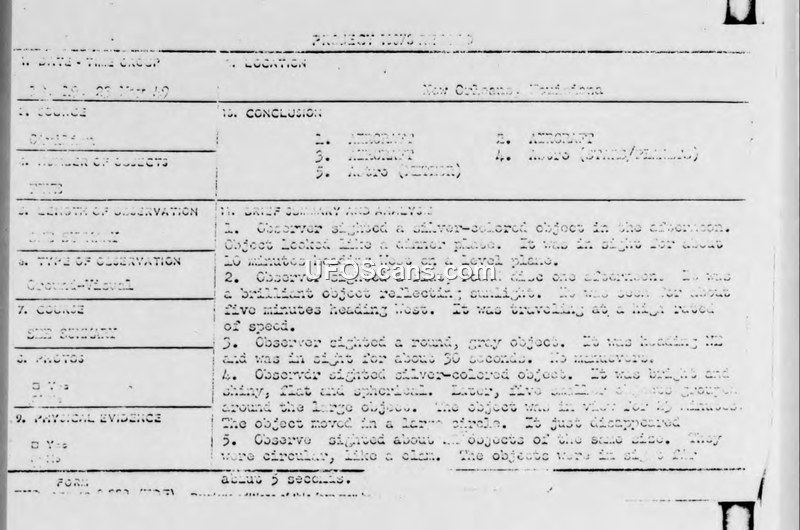 PROJECT 10073 RECORD
1. DATE - TIME GROUP
2. LOCATION
18, 19, 22 Nov 49
New Orleans, Louisiana
3. SOURCE
10. CONCLUSION
Civilian
1. AIRCRAFT 2. AIRCRAFT
3. AIRCRAFT 4. Astro (STARS/PLANETS)
5. Astro (METEOR)
4. NUMBER OF OBJECTS
FIVE
5. LENGTH OF OBSERVATION
11. BRIEF SUMMARY AND ANALYSIS
SEE SUMMARY
1. Observer sighted a silver-colored object in the afternoon.
Object looked like a dinner plate. It was in sight for about
10 minutes heading West on a level plane.
6. TYPE OF OBSERVATION
Ground-Visual
2. Observer sighted disc one afternoon. It was
a brilliant object reflecting sunlight. It was seen for about
five minutes heading West. It was traveling at a high rated
of speed.
7. COURSE
SEE SUMMARY
3. Observer sighted a round, gray object. It was heading NE
and was in sight for about 30 seconds. No maneuvers.
8. PHOTOS
□ Yes
No
4. Observer sighted silver-colored object. It was bright and
shiny, flat and spherical. Later, five smaller objects grouped
around the large object. The object was in view for 45 minutes.
The object moved in a large circle. It just disappeared
9. PHYSICAL EVIDENCE
□ Yes
No
5. Observe sighted about objects of the same size. They
were circular, like a clam. The objects were in sight for
about 5 seconds.
FORM
UFOScans.com